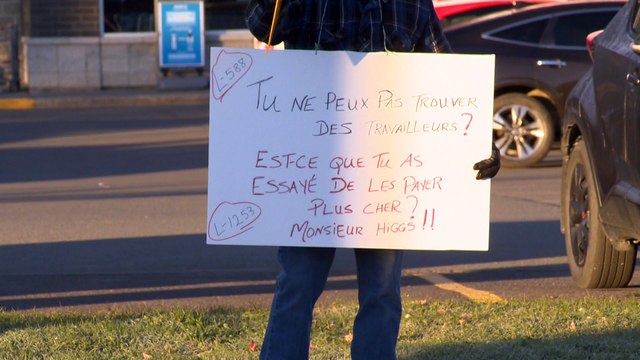 L-588
TU NE PEUX PAS TROUVER
DES TRAVAILLEURS?
EST-CE QUE TU AS
ESSAYÉ DE LES PAYER
PLUS CHER?
L-1253
MONSIEUR HIGGS!!